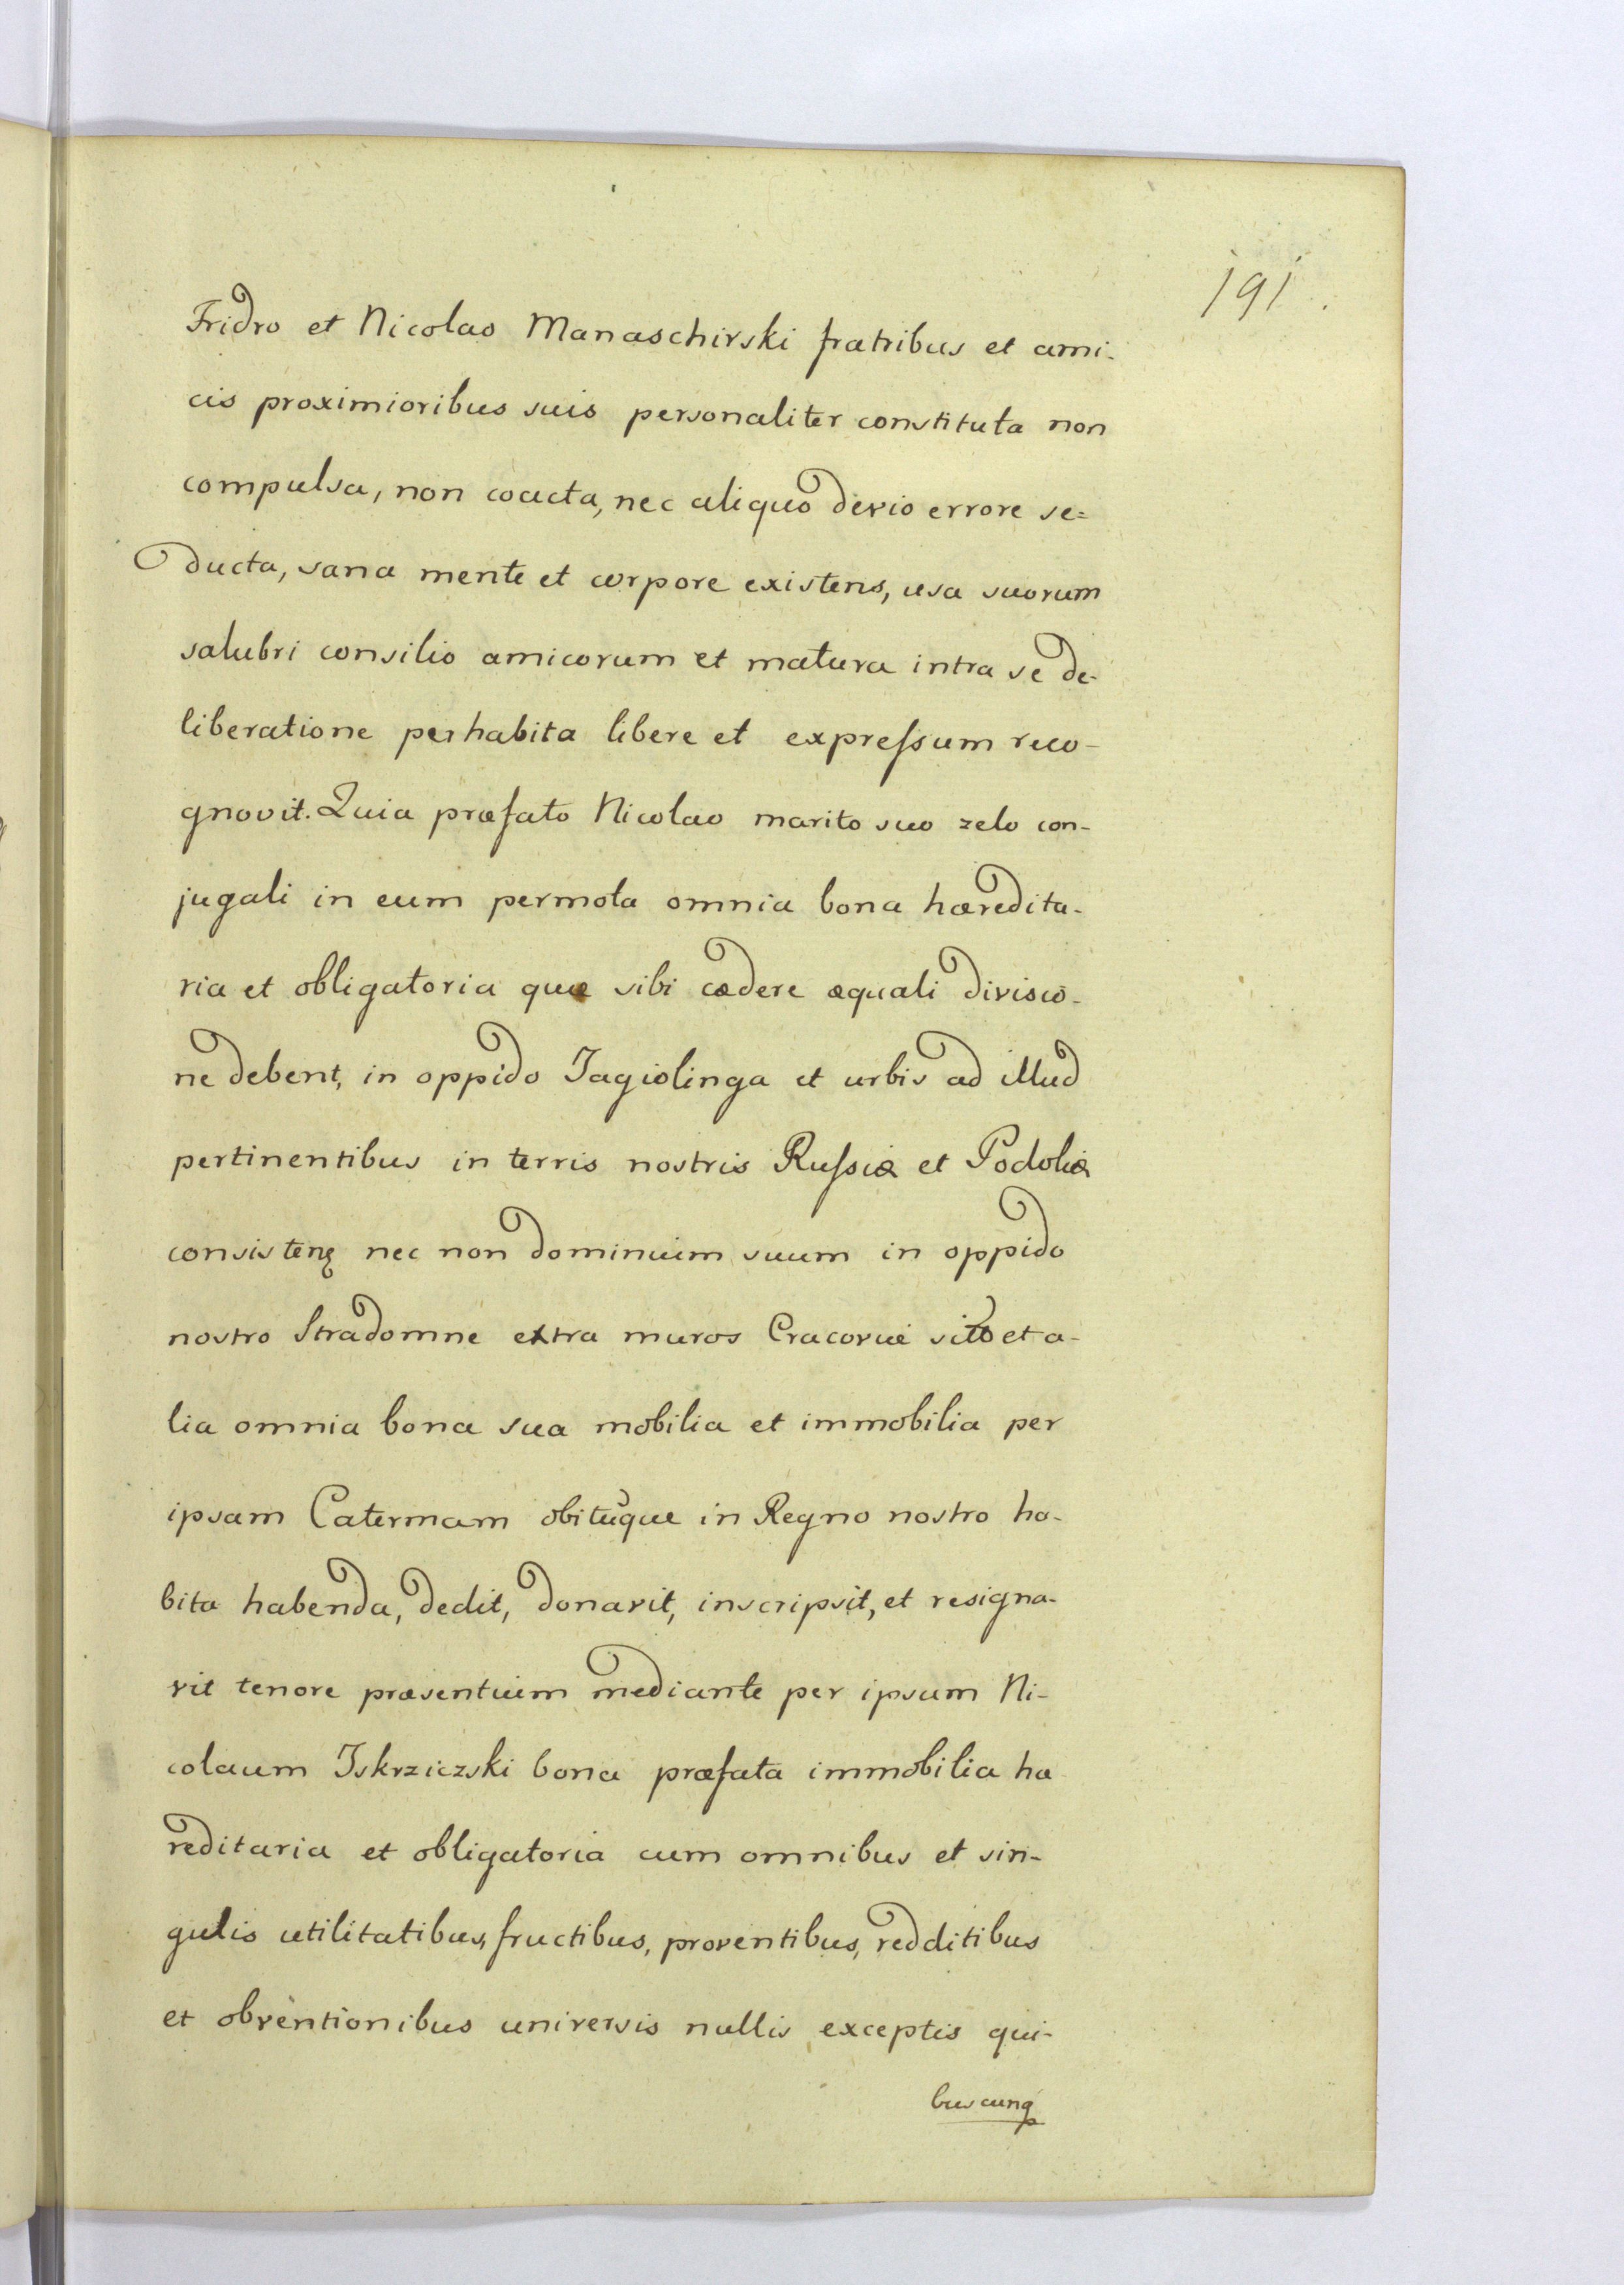 191.
Fridro et Nicolao Manaschirski fratribus et ami-
cis proximioribus suis personaliter constituta non
compulsa, non coacta, nec aliquo devio errore se=
ducta, sana mente et corpore existens, usa suorum
salubri consilio amicorum et matura intra se de-
liberatione perhabita libere et expressum reco-
gnovit. Quia præfato Nicolao marito suo zelo con-
jugali in eum permota omnia bona hæredita-
ria et obligatoria quæ sibi cædere æquali divisio-
ne debent, in oppido Jagiolinga et urbis ad illud
pertinentibus in terris nostris Russiæ et Podoliæ
consisten nec non dominium suum in oppido
nostro Stradomne extra muros Cracoviæ sito et a-
lia omnia bona sua mobilia et immobilia per
ipsam Catermam obitūque in Regno nostro ha-
bita habenda, dedit, donavit, inscripsit, et resigna-
vit tenore præsentium mediante per ipsum Ni-
colaum Iskrziczski bona præfata immobilia hæ
reditaria et obligatoria cum omnibus et sin-
gulis utilitatibus, fructibus, proventibus, redditibus
et obventionibus universis nullis exceptis qui-
buscunq